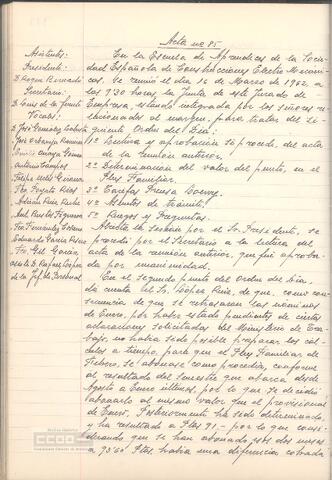 Acta nº 85
Asistentes:
Presidente:
D. Roque Bernardo
Secretario:
D. Luis de la Fuente
Vocales:
D. José González
José
Emilio Gómez
Antonio Campos
Felipe Giménez
Fco Poyato Ríos
Adrián Ruiz
Ant. Rustos Figueroa
Fco Fernández
Eduardo García
Fco Gil García
Asesor D. Rafael López
de la Jef. de Personal
En la Escuela de Aprendices de la Socie-
dad Española de Construcciones Electro Mecáni-
cas. Se reunió el día 16 de Marzo de 1962, a
las 9'30 horas la Junta de este Jurado de
Empresa, estando integrada por los señores re-
lacionados al margen, para tratar del si-
guiente Orden del Día:
1º Lectura y aprobación si procede, del acta
de la reunión anterior.
2º Determinación del valor del punto, en el
Plus Familiar.
3º Tarifas Prensa
4º Asuntos de trámite
5º Ruegos y Preguntas.
Abierta la sesión por el Sr. Presidente, se
procedió por el Secretario a la lectura del
acta de la reunión anterior, que fué aproba-
da por unanimidad.
En el segundo punto del Orden del Día,
da cuenta el Sr. López Ruiz, de que, como con-
secuencia de que se retrasaron las nóminas
de Enero, por haber estado pendientes de ciertas
aclaraciones solicitadas del Ministerio de Tra-
bajo, no había sido posible preparar los cál-
culos a tiempo, para que el Plus Familiar de
Febrero, se abonase como procedía, conforme
al resultado del semestre que abarca, desde
Agosto a Enero últimos por lo que se decidió
abonarlo al mismo valor que el provisional
de Enero. Posteriormente ha sido determinado
y ha resultado a Ptas 91 - por lo que consi-
derando que se han abonado dos meses
a 93'60 Ptas había una diferencia cobrada
CCOO